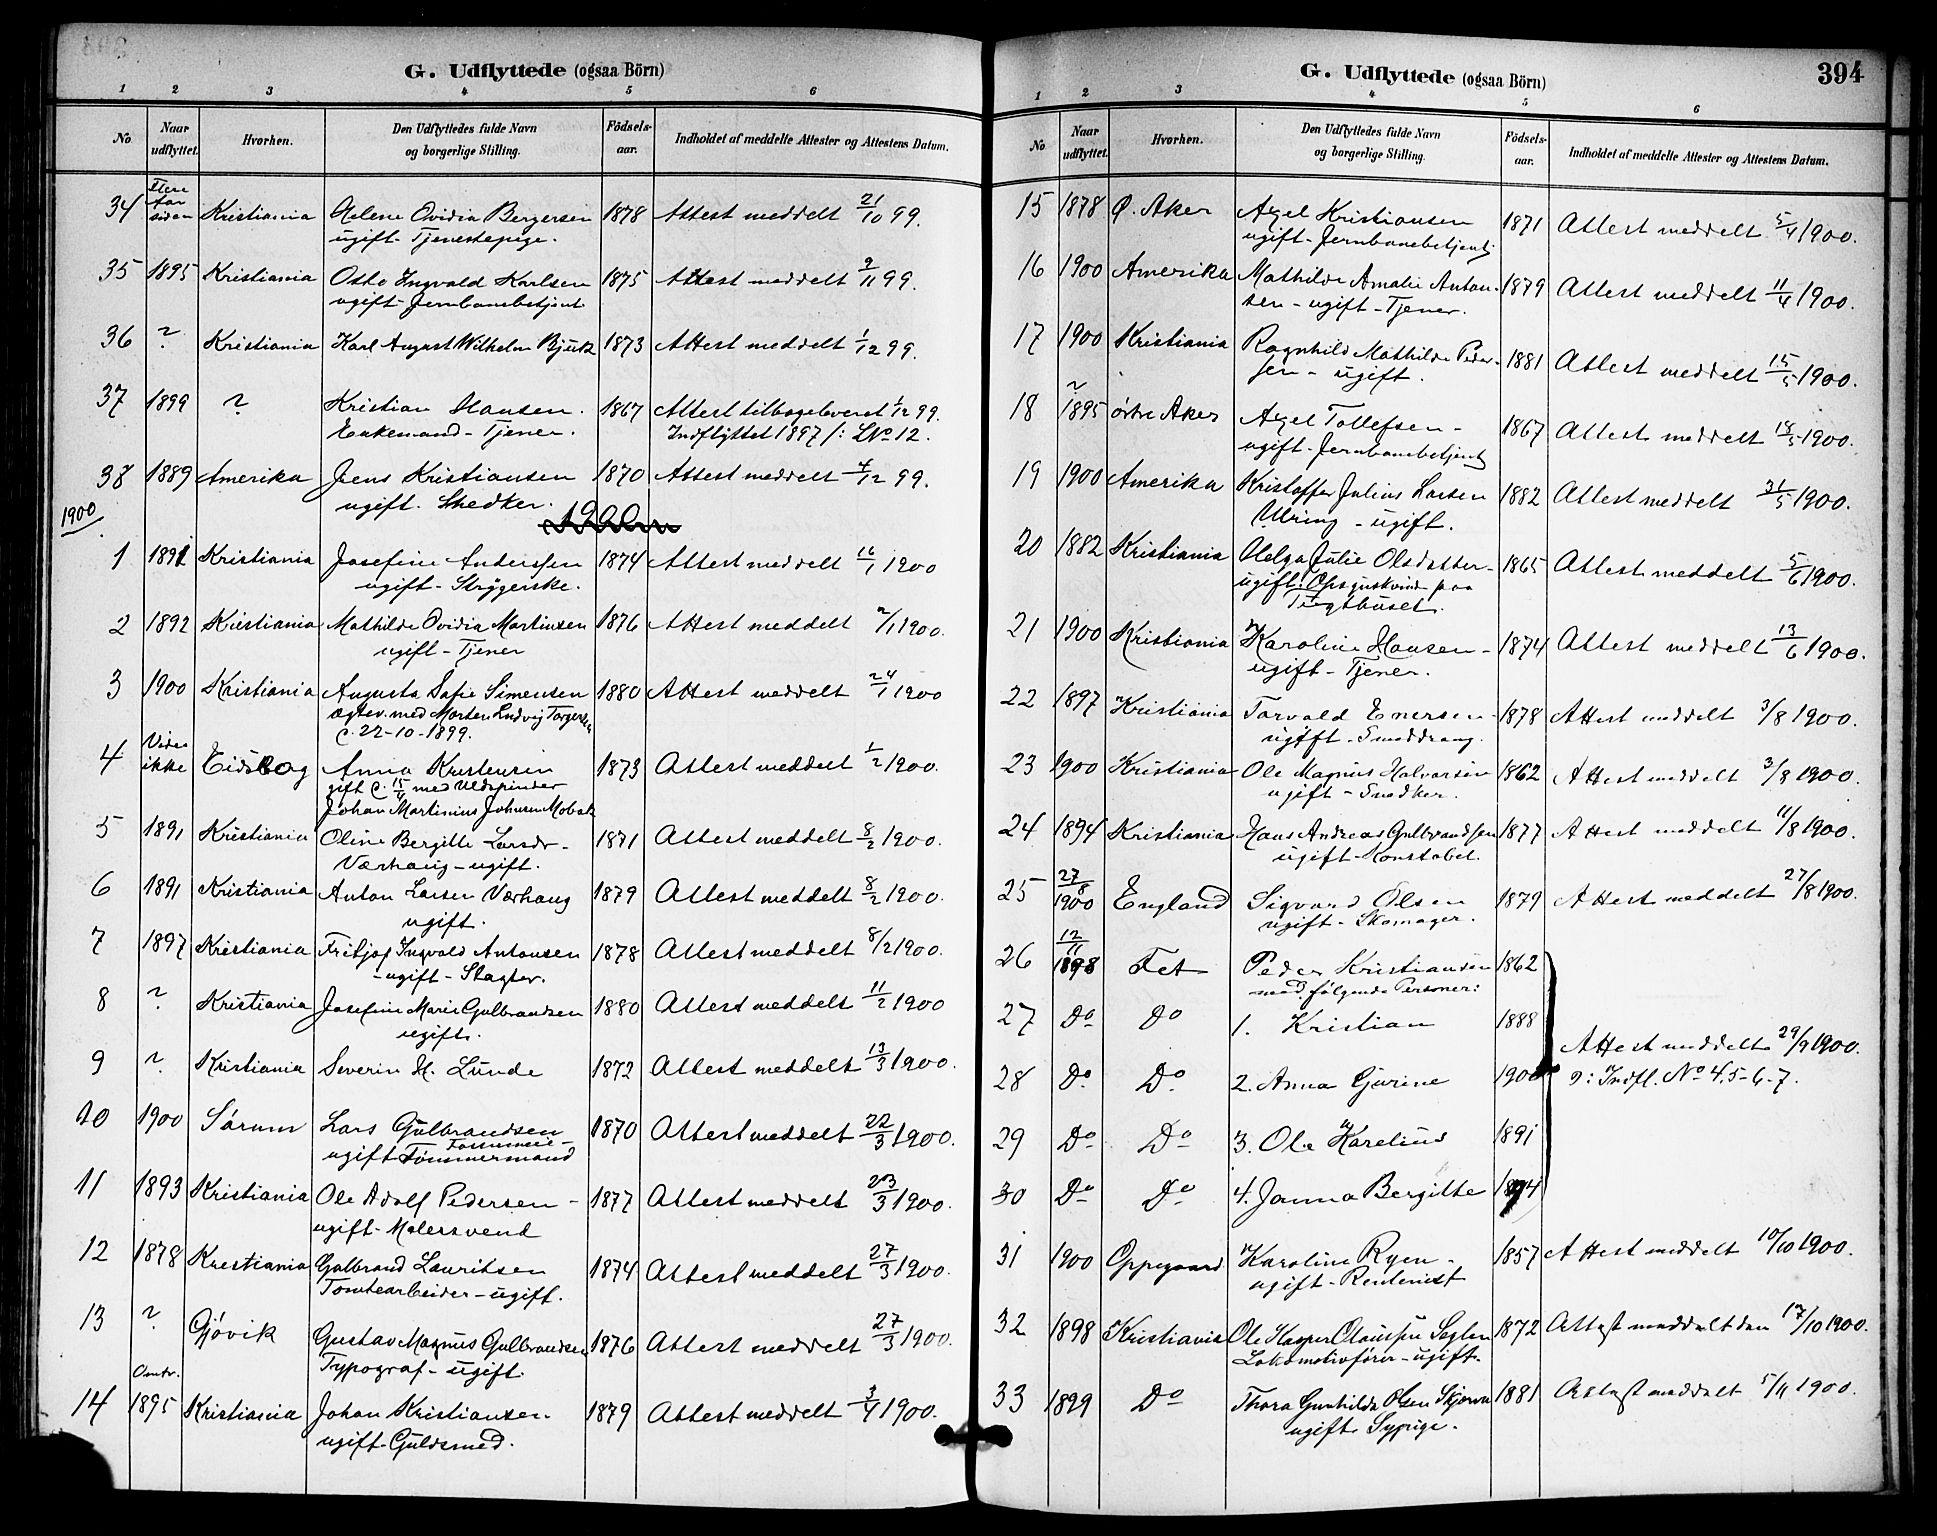 G. Udflyttede (ogsaa Börn)
1 2 3 4 5 6
No Naar udflyttet. Hvorhen. Den Udflyttedes fulde Navn og borgerlige Stilling. Födsels-aar. Indholdet af meddelte Attester og Attestens Datum.
34 Flere Aar siden Kristiania Helene Ovidia Bergersen 1878 Attest meddelt 21/10 99.
ugift - Tjenestepige.
35 1895 Kristiania Otto Ingvald Karlsen 1875 Attest meddelt 9/11 99.
ugift - Jernbanebetjent
36 ? Kristiania Karl August Wilhelm Bjurk 1873 Attest meddelt 1/12 99.
37 1899 ? Kristian Hansen. 1867 Attest tilbageleveret 1/12 99.
Enkemand - Tjener. Indflyttet 1897 /: LNo 12.
38 1889 Amerika Jens Kristiansen 1870 Attest meddelt 4/12 99.
ugift. Snedker.
1900
1 1891 Kristiania Josefine Anderssen 1874 Attest meddelt 16/1 1900
ugift - Strygerske.
2 1892 Kristiania Mathilde Ovidia Martinsen 1876 Attest meddelt /1 1900.
ugift - Tjener
3 1900 Kristiania Augusta Sofie Simensen 1880 Attest meddelt 24/1 1900
ægtev. med Morten Ludvig Torgersen
c. 22-10-1899.
4 Vides ikke Eidsberg Anna Kristensen 1873 Attest meddelt 1/2 1900.
gift c. 15/4 med Uldspinder
Johan Martinius Johnsen Mobak
5 1891 Kristiania Oline Bergitte Larsdr - 1871 Attest meddelt 8/2 1900.
Værhaug - ugift.
6 1891 Kristiania Anton Larsen Værhaug 1879 Attest meddelt 8/2 1900.
ugift.
7 1897 Kristiania Fritjof Ingvald Antonsen 1878 Attest meddelt 8/2 1900.
- ugift - Slagter.
8 ? Kristiania Josefine Marie Gulbrandsen 1880 Attest meddelt 11/2 1900
ugift.
9 ? Kristiania Severin H. Lunde 1872 Attest meddelt 13/3 1900.
10 1900 Sørum Lars Gulbrandsen 1870 Attest meddelt 22/3 1900.
ugift Tømmermand
11 1893 Kristiania Ole Adolf Pedersen - 1877 Attest meddelt 23/3 1900.
ugift - Malersvend
12 1878 Kristiania Gulbrand Lauritsen 1874 Attest meddelt 27/3 1900.
Tomtearbeider - ugift.
13 ? Gjøvik Gustav Magnus Gulbrandsen 1876 Attest meddelt 27/3 1900.
Typograf - ugift.
14 Omtr. 1895 Kristiania Johan Kristiansen. 1879 Attest meddelt 3/4 1900.
ugift - Guldsmed.
G. Udflyttede (ogsaa Börn) 394
1 2 3 4 5 6
No Naar udflyttet. Hvorhen. Den Udflyttedes fulde Navn og borgerlige Stilling. Födsels-aar. Indholdet af meddelte Attester og Attestens Datum.
15 1878 Ø. Aker Axel Kristiansen 1871 Attest meddelt 5/4 1900.
ugift - Jernbanebetjent
16 1900 Amerika Mathilde Amalie Anton- 1879 Attest meddelt 11/4 1900.
sen - ugift - Tjener.
17 1900 Kristiania Ragnhild Mathilde Peder- 1881 Attest meddelt 15/5 1900.
sen - ugift.
18 ~ 1895 østre Aker Axel Tollefsen - 1867 Attest meddelt 18/5 1900.
ugift - Jernbanebetjent
19 1900 Amerika Kristoffer Julius Larsen 1882 Attest meddelt 31/5 1900.
Ulring - ugift.
20 1882 Kristiania Helga Julie Olsdatter - 1865 Attest meddelt 5/6 1900.
ugift: Opsynskvinde paa
Tugthuset.
21 1900 Kristiania Karoline Hansen - 1874 Attest meddelt 13/6 1900.
ugift - Tjener.
22 1897 Kristiania Torvald Enersen - 1878 Attest meddelt 3/8 1900.
ugift - Smeddreng.
23 1900 Kristiania Ole Magnus Halvorsen 1862 Attest meddelt 3/8 1900.
ugift - Snedker.
24 1894 Kristiania Hans Andreas Gulbrandsen 1877 Attest meddelt 11/8 1900.
ugift - Konstabel.
25 27/8 1900 England Sigvard Olsen 1879 Attest meddelt 27/8 1900.
ugift - Skomager.
26 12/11 1898 Fet Peder Kristiansen 1862
med følgende Personer:
27 Do Do 1. Kristian 1888
Attest meddelt 29/9 1900.
28 Do Do 2. Anna Gurine 1900 ɔ: Indfl. No 4, 5-6-7.
29 Do Do 3. Ole Karelius 1891
30 Do Do 4. Janna Bergitte 1894
31 1900 Oppegaard Karoline Ryen - 1857 Attest meddelt 10/10 1900.
ugift - Rentenist
32 1898 Kristiania Ole Kasper Olaussen Seglen 1872 Attest meddelt den 17/10 1900.
Lokomotivfører - ugift.
33 1899 Do Thora Gunhilda Olsen 1881 Attest meddelt 5/11 1900.
ugift Sypige.